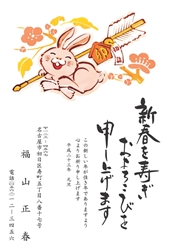 新春を寿ぎ
およろこびを
申し上げます
この新しい年が佳き年でありますよう
心よりお祈り申し上げます
平成二十三年　元旦
名古屋市旭日区寿町五丁目八番十七号
福山正春